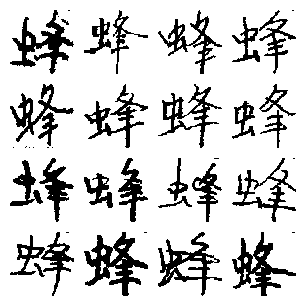 蜂蜂蜂蜂
蜂蜂蜂蜂
蜂蜂蜂蜂
蜂蜂蜂蜂